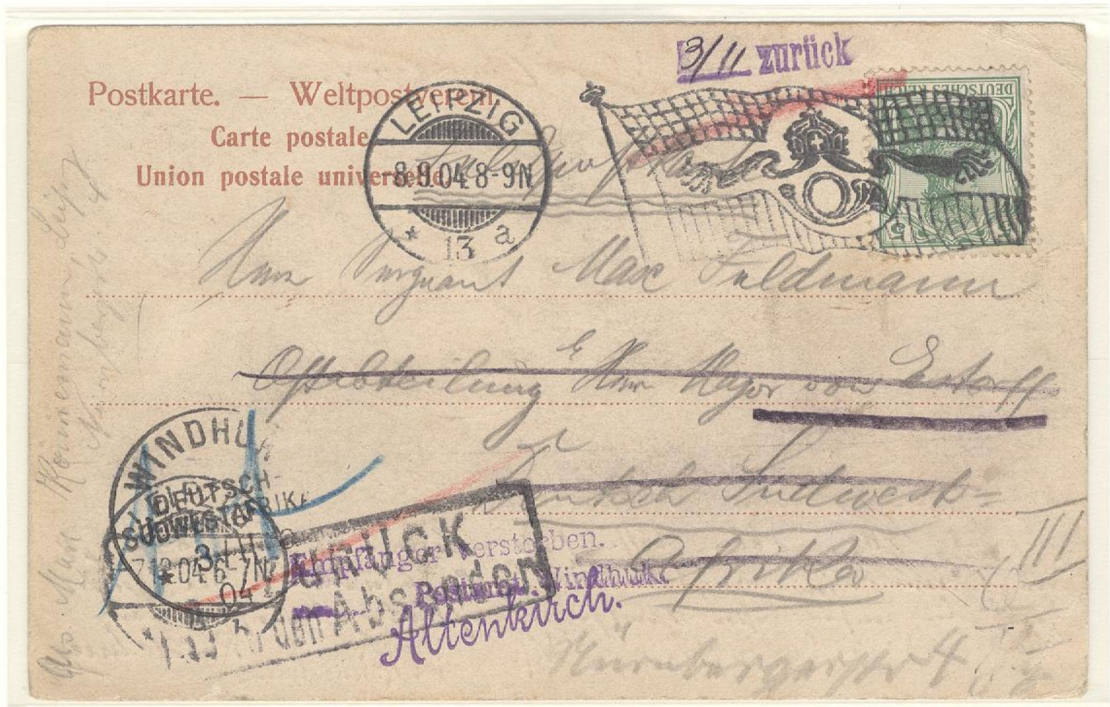 3/11 zurück
Postkarte. — Weltpostverein.
Carte postale
Union postale universelle
DEUTSCHES REICH
5
LEIPZIG
8.9.04.8-9N
* 13 a
Herrn Sergeant Max Feldmann
Ostabteilung Herr Major von Estorff
in
Deutsch Südwest=
Afrika
WINDHUK
DEUTSCH-
SÜDWESTAFRIKA
3.11.
04
ZURÜCK
an den Absender
Empfänger verstorben.
Postamt Windhuk.
Altenkirch.
Nürnbergerstr 4
III
Abs. Max Könnemann Leipzig
Nürnbergerstr. 4